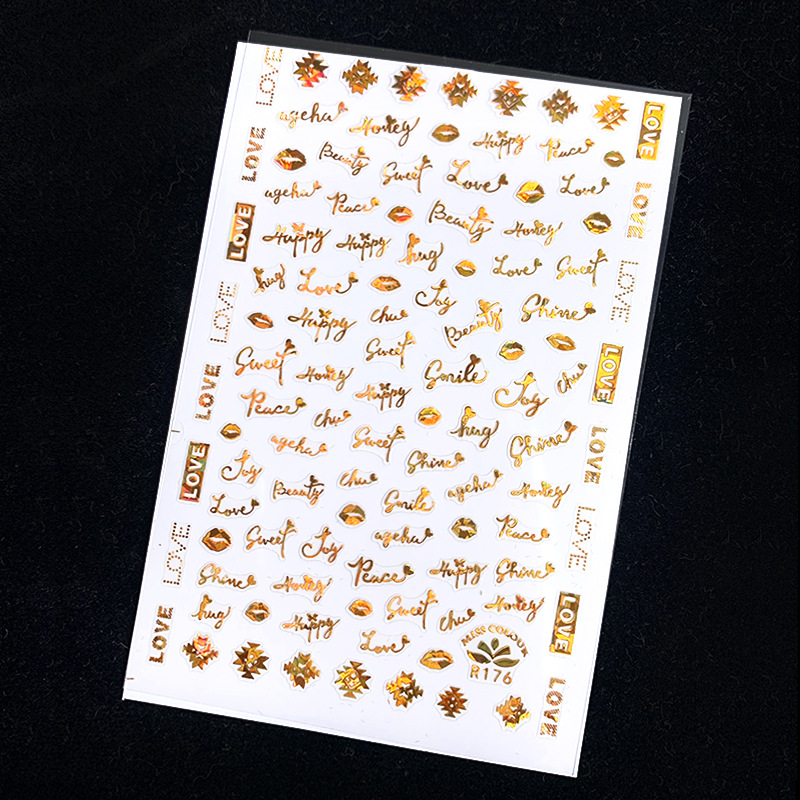 LOVE
ageha Honey Happy Peace LOVE
LOVE Beauty Sweet Love Love
ageha Peace Beauty Honey LOVE
LOVE Happy Happy hug Love Sweet
hug Love Joy Shine LOVE
LOVE Happy chu Beauty
Sweet Honey Sweet Smile Joy chu LOVE
LOVE Peace chu Happy hug Shine
ageha Sweet Shine LOVE
LOVE Joy Beauty chu Smile ageha Honey
Love ageha Peace LOVE
LOVE Sweet Joy Peace Happy Shine
Shine Honey Sweet chu Honey LOVE
LOVE hug Happy Love MISS COLOUR
R176 LOVE